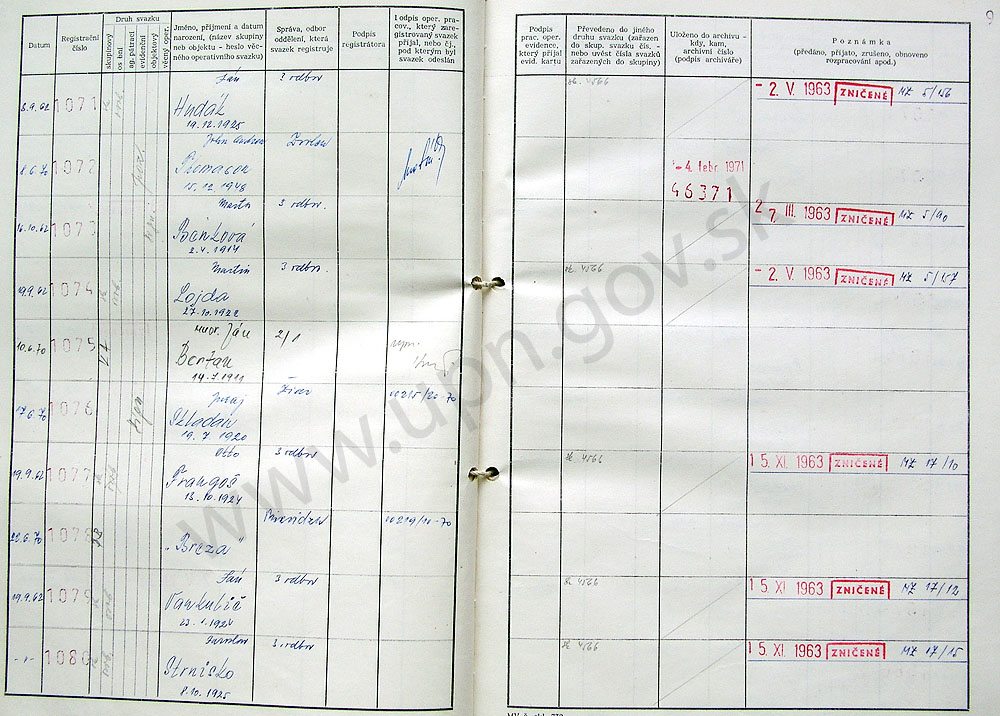 Datum
Registrační číslo
Druh svazku
skupinový
osobní
ag. pátrací
evidenční
objektový
věcný oper.
Jméno, příjmení a datum
narození, (název skupiny
neb objektu - heslo věc-
ného operativního svazku)
Správa, odbor
oddělení, která
svazek registruje
Podpis
registrátora
Podpis oper. pra-
cov., který zare-
gistrovaný svazek
přijal, nebo čj.,
pod kterým byl
svazek odeslán
Podpis
prac. oper.
evidence,
který přijal
evid. kartu
Převedeno do jiného
druhu svazku (zařazen
do skup. svazku čís. -
nebo uvést čísla svazků
zařazených do skupiny)
Uloženo do archivu -
kdy, kam,
archivní číslo
(podpis archiváře)
Poznámka
(předáno, přijato, zrušeno, obnoveno
rozpracování apod.)
9
8.9.62 1071 Ján 3 odbor
Hudák
19.12.1925
sk. 4566
- 2. V. 1963 ZNIČENÉ MZ 5/156
8.6.70 1072 John
15.12.1948
- 4. febr. 1971
46371
16.10.62 1073 Marta 3 odbor.
2.4.1914
27. III. 1963 ZNIČENÉ MZ 5/90
19.9.62 1074 Martin 3 odbor.
Lojda
27.10.1922
sk. 4566
- 2. V. 1963 ZNIČENÉ MZ 5/157
10.6.70 1075 Ján 2/1
14.7.1911
17.6.70 1076 Juraj
19.7.1920
00215/20-70
19.9.62 1077 Otto 3 odbor
Frangoš
13.10.1924
sk. 4566
15. XI. 1963 ZNIČENÉ MZ 17/10
22.6.70 1078 Prievidza 00219/10-70
"Breza"
19.9.62 1079 Ján 3 odbor
Vankulič
23.1.1924
sk 4566
15. XI. 1963 ZNIČENÉ MZ 17/12
-"- 1080 Jaroslav 3. odbor
Strnisko
8.10.1925
sk 4566
15. XI. 1963 ZNIČENÉ MZ 17/15
www.upn.gov.sk